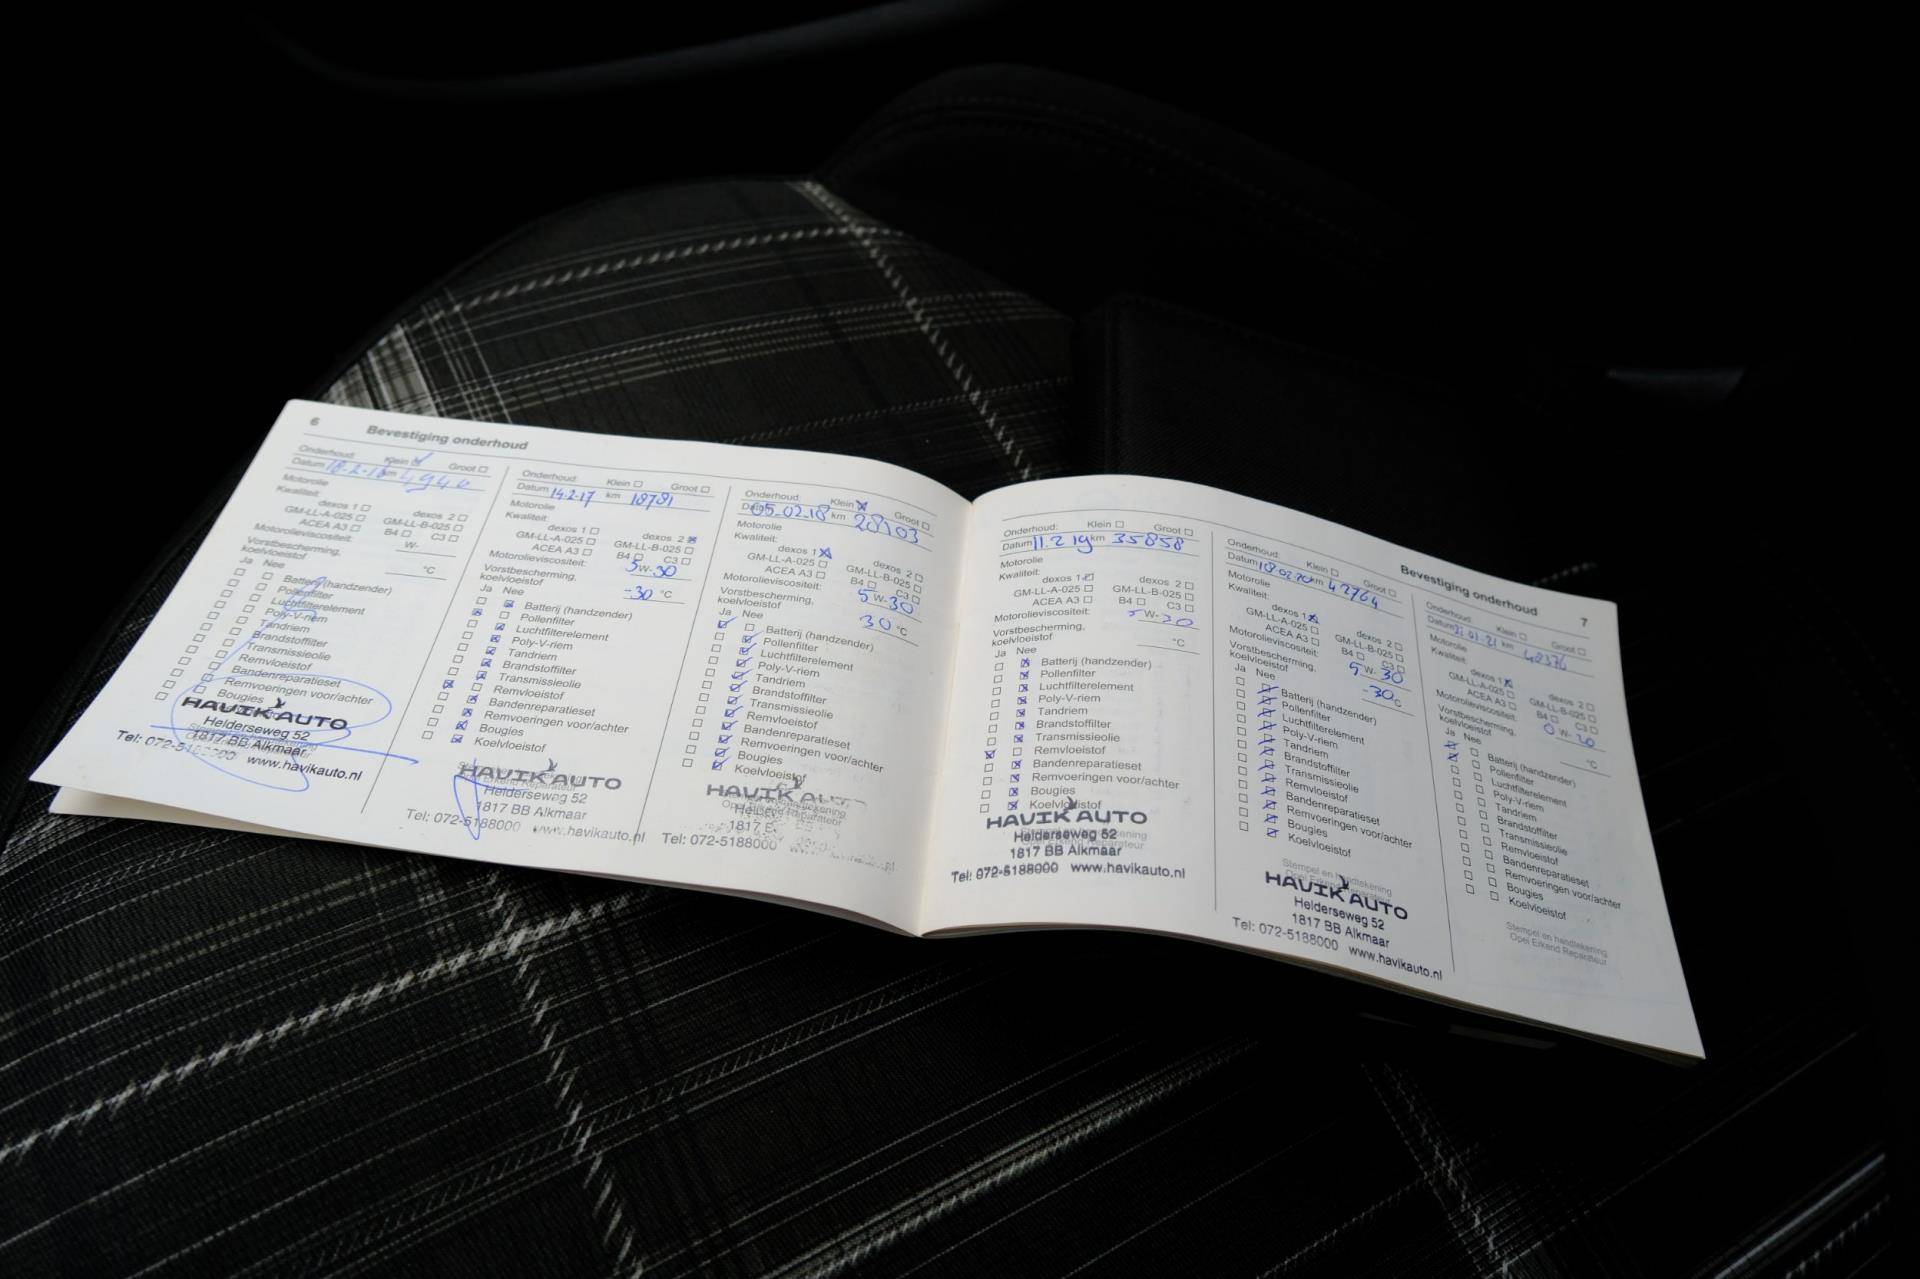 6 Bevestiging onderhoud
Onderhoud: Klein Groot
Datum 18-2-16 km 4940
Motorolie
Kwaliteit:
dexos 1 dexos 2
GM-LL-A-025 GM-LL-B-025
ACEA A3 B4 C3
Motorolieviscositeit: W-
Vorstbescherming,
koelvloeistof °C
Ja Nee
Batterij (handzender)
Pollenfilter
Luchtfilterelement
Poly-V-riem
Tandriem
Brandstoffilter
Transmissieolie
Remvloeistof
Bandenreparatieset
Remvoeringen voor/achter
Bougies
HAVIK AUTO
Helderseweg 52
1817 BB Alkmaar
Tel: 072-5188000 www.havikauto.nl
Onderhoud: Klein Groot
Datum 14-2-17 km 18781
Motorolie
Kwaliteit:
dexos 1 dexos 2
GM-LL-A-025 GM-LL-B-025
ACEA A3 B4 C3
Motorolieviscositeit: 5W-30
Vorstbescherming,
koelvloeistof -30 °C
Ja Nee
Batterij (handzender)
Pollenfilter
Luchtfilterelement
Poly-V-riem
Tandriem
Brandstoffilter
Transmissieolie
Remvloeistof
Bandenreparatieset
Remvoeringen voor/achter
Bougies
Koelvloeistof
HAVIK AUTO
Helderseweg 52
1817 BB Alkmaar
Tel: 072-5188000 www.havikauto.nl
Onderhoud: Klein Groot
Datum 05-02-18 km 28103
Motorolie
Kwaliteit:
dexos 1 dexos 2
GM-LL-A-025 GM-LL-B-025
ACEA A3 B4 C3
Motorolieviscositeit: 5W-30
Vorstbescherming,
koelvloeistof 30 °C
Ja Nee
Batterij (handzender)
Pollenfilter
Luchtfilterelement
Poly-V-riem
Tandriem
Brandstoffilter
Transmissieolie
Remvloeistof
Bandenreparatieset
Remvoeringen voor/achter
Bougies
Koelvloeistof
HAVIK AUTO
Tel: 072-5188000
Bevestiging onderhoud 7
Onderhoud: Klein Groot
Datum 11.2 19 km 35858
Motorolie
Kwaliteit:
dexos 1 dexos 2
GM-LL-A-025 GM-LL-B-025
ACEA A3 B4 C3
Motorolieviscositeit: 5W-30
Vorstbescherming,
koelvloeistof °C
Ja Nee
Batterij (handzender)
Pollenfilter
Luchtfilterelement
Poly-V-riem
Tandriem
Brandstoffilter
Transmissieolie
Remvloeistof
Bandenreparatieset
Remvoeringen voor/achter
Bougies
Koelvloeistof
HAVIK AUTO
Helderseweg 52
1817 BB Alkmaar
Tel: 072-5188000 www.havikauto.nl
Onderhoud: Klein Groot
Datum 18-02-20 km 42764
Motorolie
Kwaliteit:
dexos 1 dexos 2
GM-LL-A-025 GM-LL-B-025
ACEA A3 B4 C3
Motorolieviscositeit: 5W-30
Vorstbescherming,
koelvloeistof -30 °C
Ja Nee
Batterij (handzender)
Pollenfilter
Luchtfilterelement
Poly-V-riem
Tandriem
Brandstoffilter
Transmissieolie
Remvloeistof
Bandenreparatieset
Remvoeringen voor/achter
Bougies
Koelvloeistof
Stempel en handtekening
HAVIK AUTO
Helderseweg 52
1817 BB Alkmaar
Tel: 072-5188000 www.havikauto.nl
Onderhoud: Klein Groot
Datum 01-21 km 48376
Motorolie
Kwaliteit:
dexos 1 dexos 2
GM-LL-A-025 GM-LL-B-025
ACEA A3 B4 C3
Motorolieviscositeit: 0W-20
Vorstbescherming,
koelvloeistof °C
Ja Nee
Batterij (handzender)
Pollenfilter
Luchtfilterelement
Poly-V-riem
Tandriem
Brandstoffilter
Transmissieolie
Remvloeistof
Bandenreparatieset
Remvoeringen voor/achter
Bougies
Koelvloeistof
Stempel en handtekening
Opel Erkend Reparateur